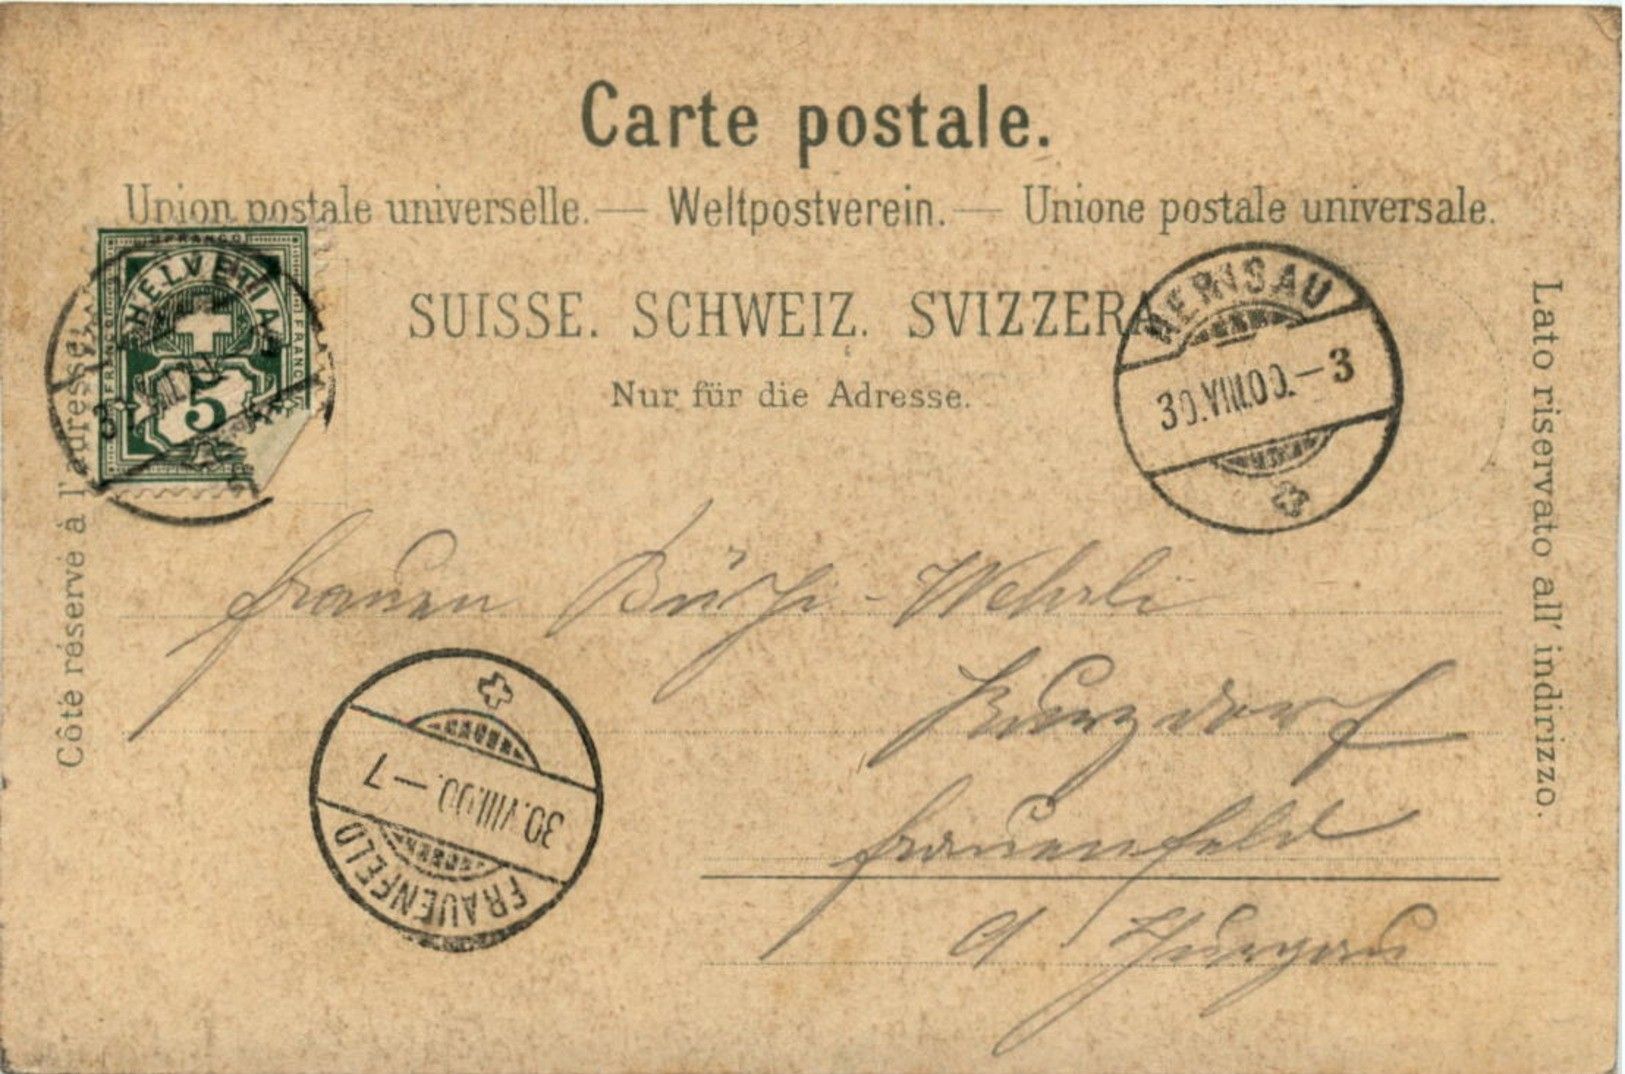 Carte postale.
Union postale universelle. — Weltpostverein. — Unione postale universale.
SUISSE. SCHWEIZ. SVIZZERA
Nur für die Adresse.
Côté réservé à l'adresse.
Lato riservato all' indirizzo.
FRANCO
HELVETIA
FRANCO
FRANCO
5
HERISAU
30.VIII.00.—3
Frauen Büchi-Wehrli
Kurzdorf
Frauenfeld
Thurgau
30.VIII.00.—7
FRAUENFELD